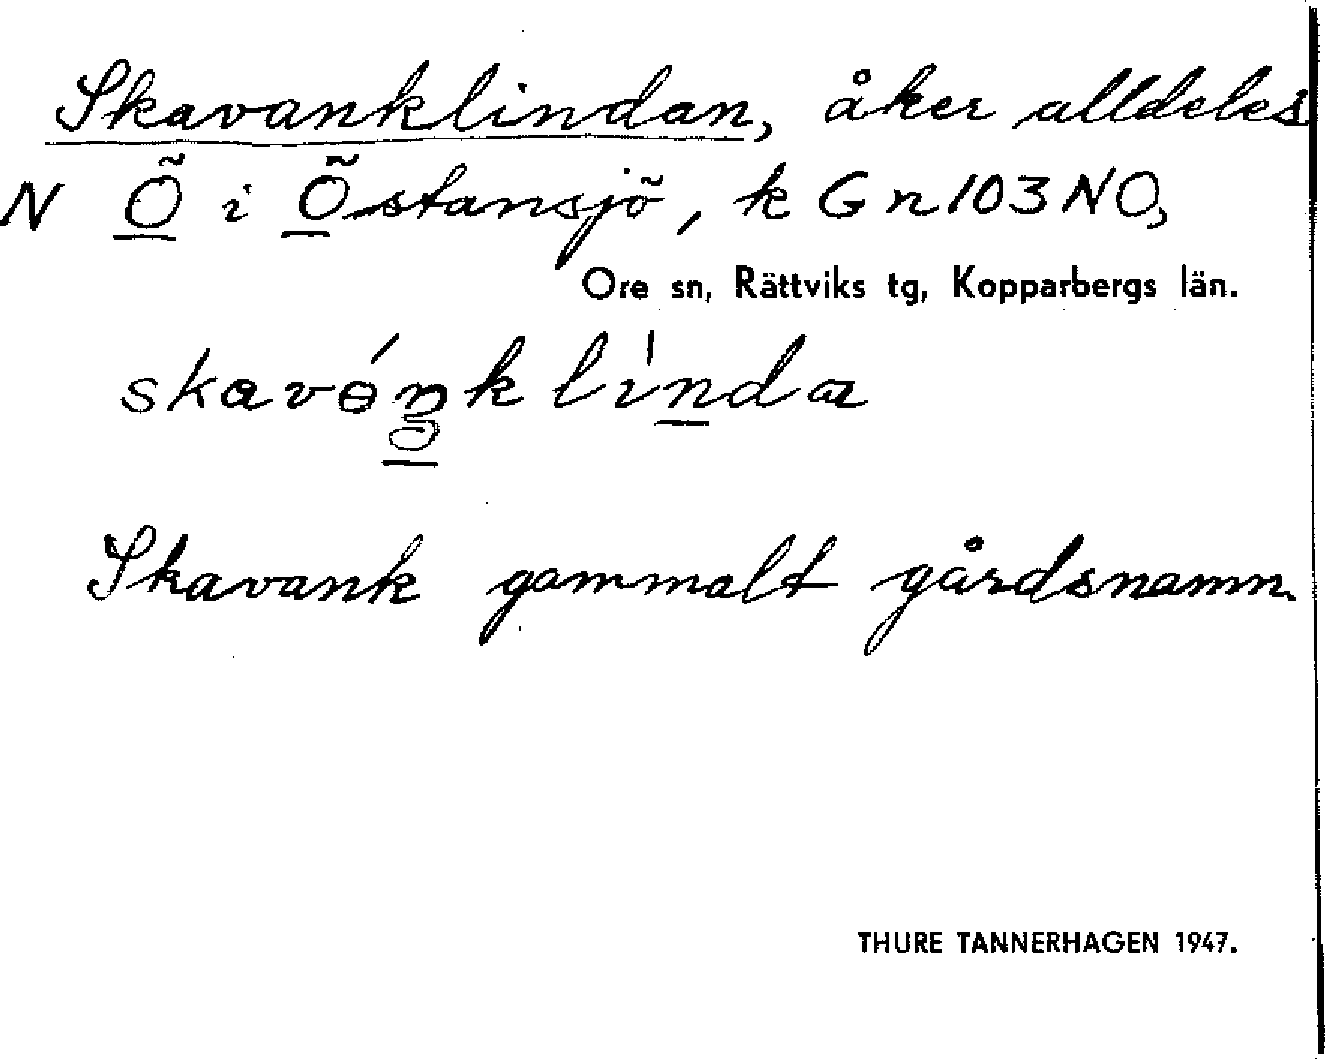 Skavanklindan, åker alldeles
N Ö i Östansjö, k Gn103NO,
Ore sn, Rättviks tg, Kopparbergs län.
skavɵ́ŋk lìnda
Skavank gammalt gårdsnamn.
THURE TANNERHAGEN 1947.